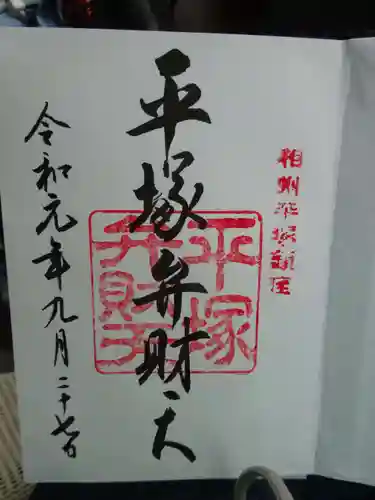 相州平塚新宿
平塚弁財天
平塚
弁財天
令和元年九月二十七日